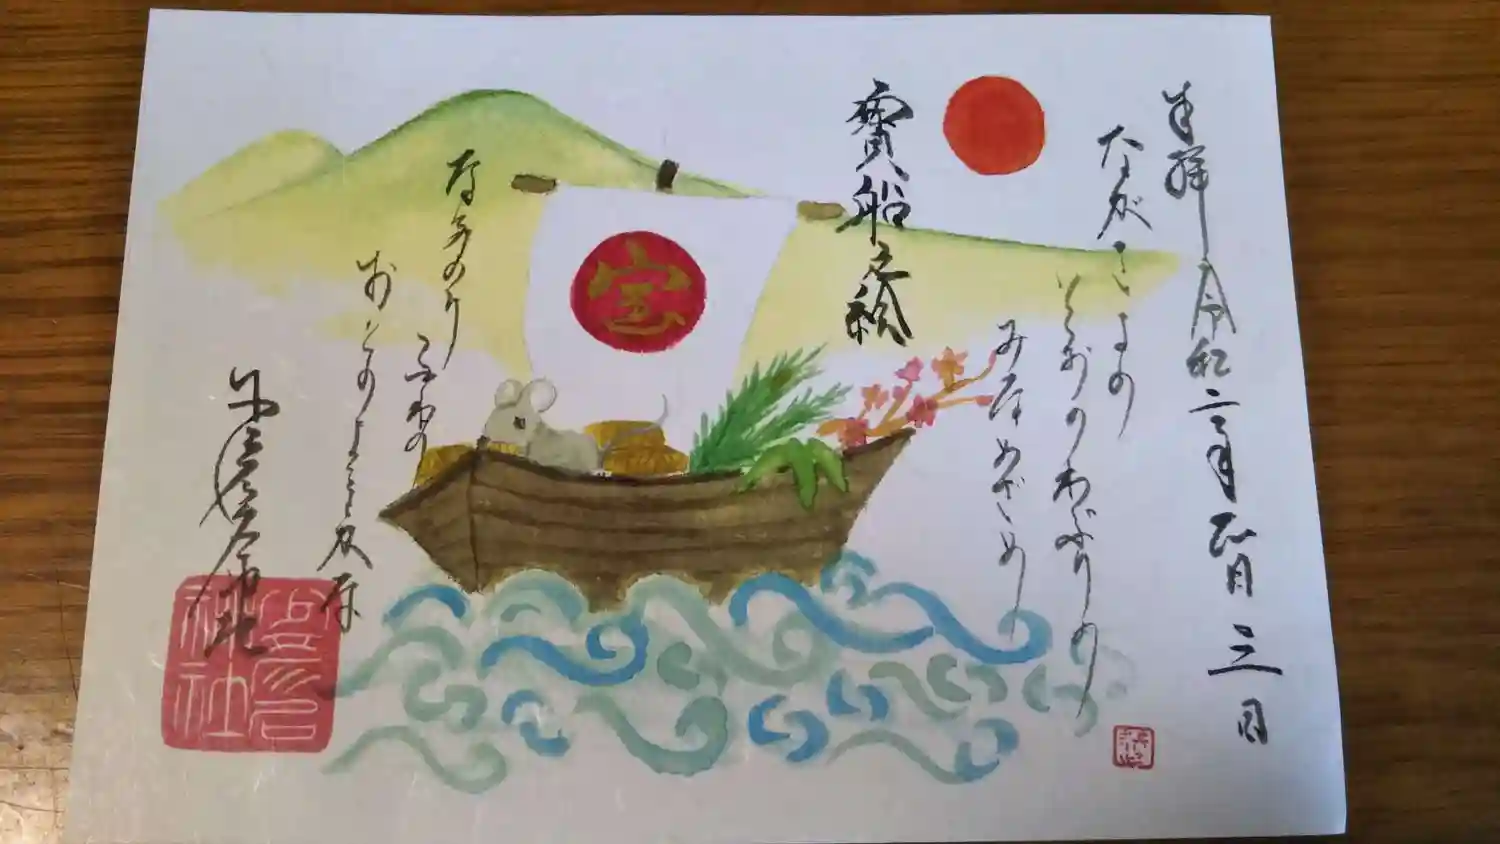 奉拝 令和二年 正月 三日
ながきよの
とおのねぶりの
みなめざめ
寳船之絵
宝
なみのり
ふねの
おとのよきかな
神社